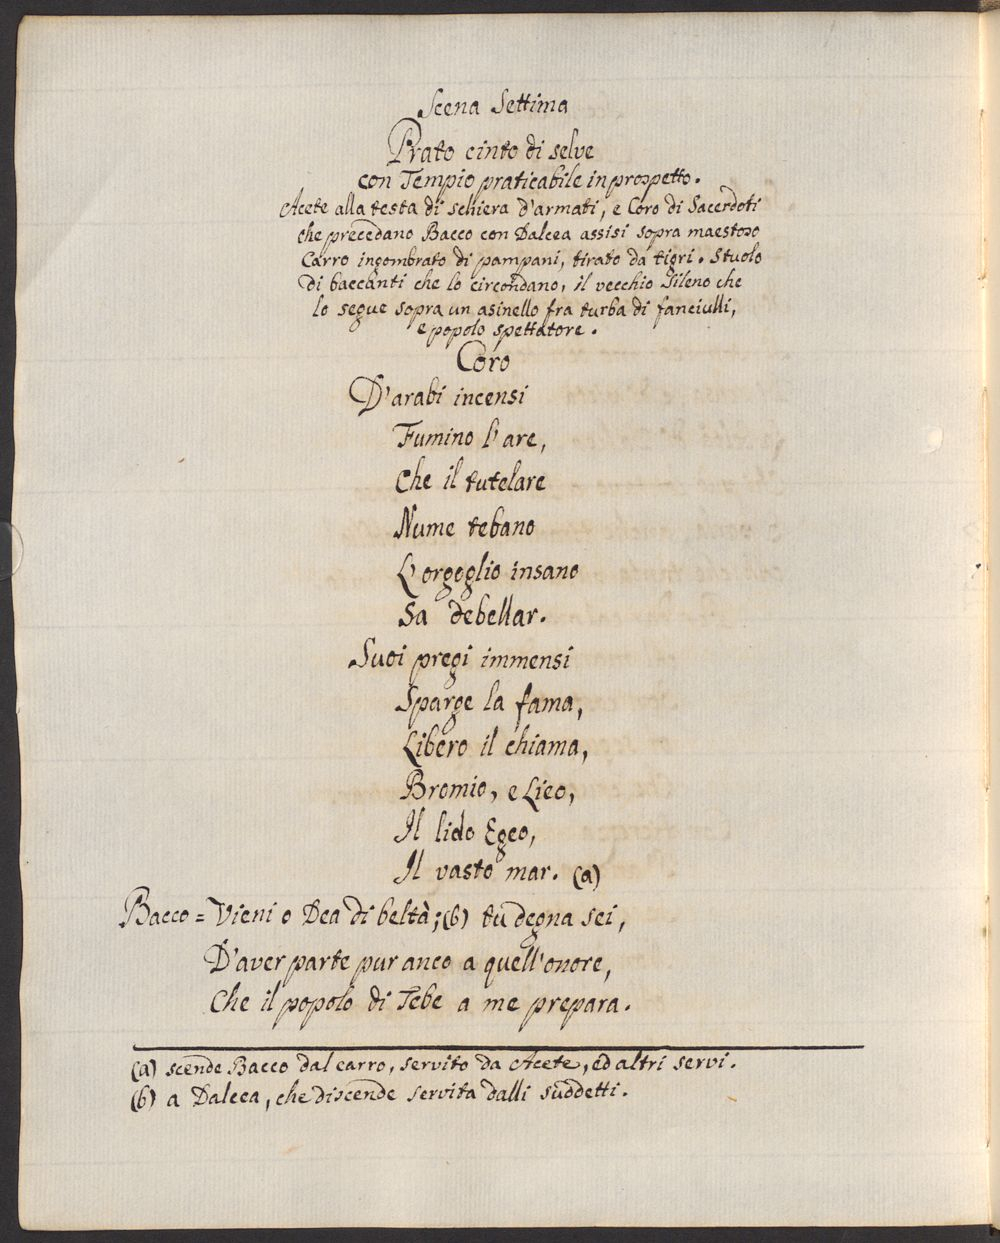 Scena Settima
Prato cinto di selve
con Tempio praticabile in prospetto.
Acete alla testa di schiera d'armati, e Coro di Sacerdoti
che precedano Bacco con Dalcea assisi sopra maestoso
Carro ingombrato di pampani, tirato da tigri. Stuolo
di baccanti che lo circondano, il vecchio Sileno che
lo segue sopra un asinello fra turba di fanciulli,
e popolo spettatore.
Coro
D'arabi incensi
Fumino l'are,
Che il tutelare
Nume tebano
L'orgoglio insano
Sa debellar.
Suoi pregi immensi
Sparge la fama,
Libero il chiama,
Bromio, e Lieo,
Il lido Egeo,
Il vasto mar. (a)
Bacco = Vieni o Dea di beltà; (b) tu degna sei,
D'aver parte pur anco a quell'onore,
Che il popolo di Tebe a me prepara.
(a) scende Bacco dal carro, servito da Acete, ed altri servi.
(b) a Dalcea, che discende servita dalli suddetti.